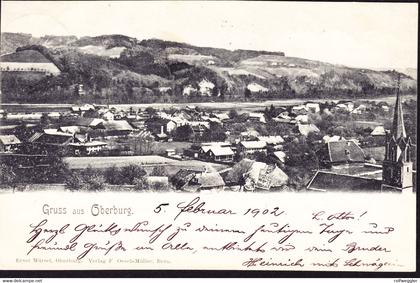 Gruss aus Oberburg. 5. Februar 1902
L. Otto!
Herzl. Glückswunsch zu deinem heutigen Tage und
freundl. Grüße an Alle, entbietet von dem Bruder
Heinrich mit Schwägerin
Ernst Würsel, Oberburg. Verlag F. Oesch-Müller, Bern.